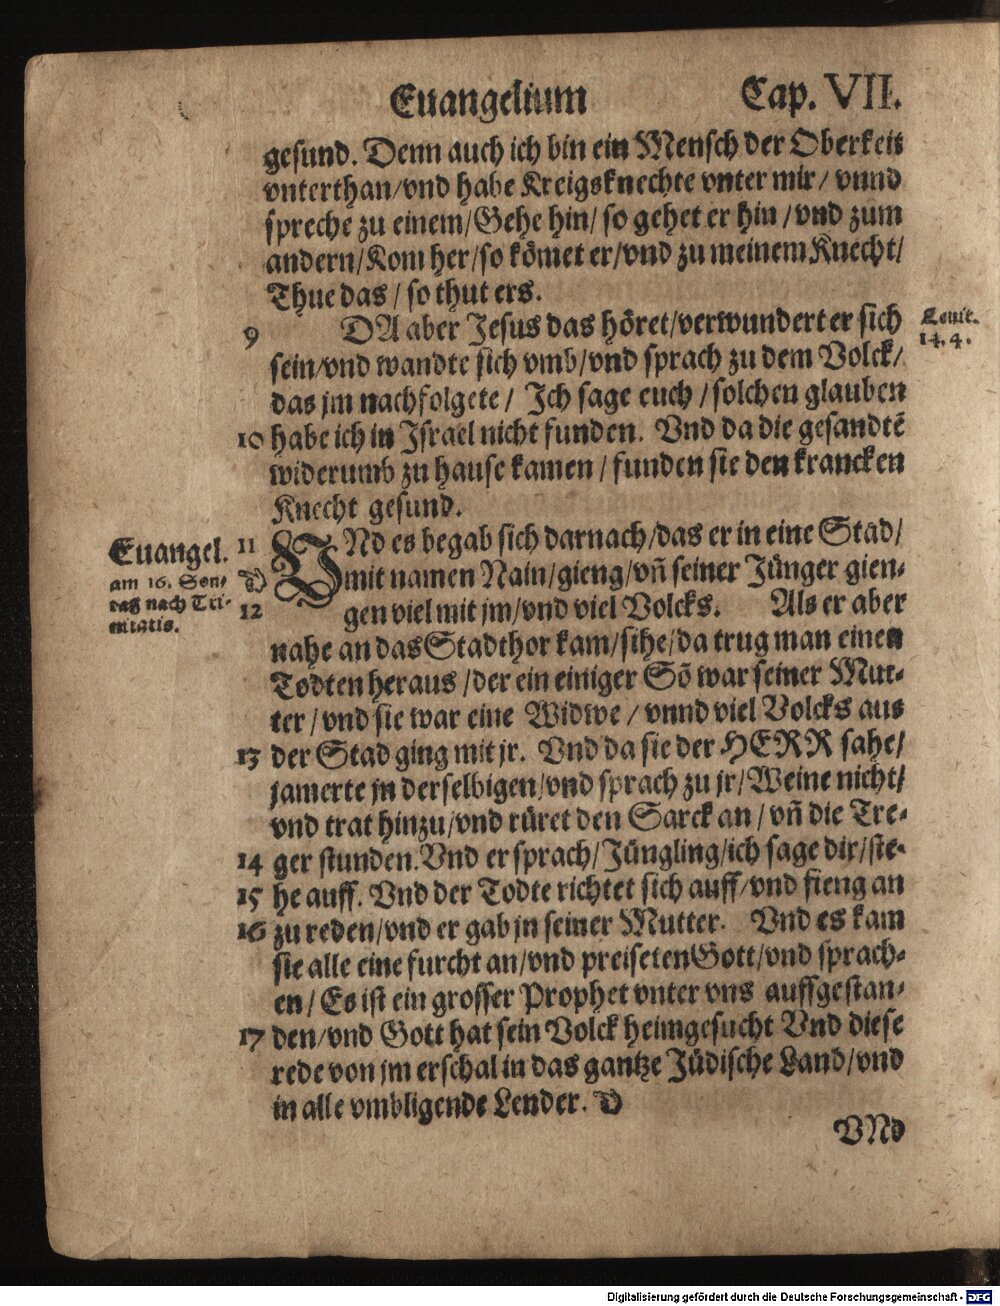 Euangelium Cap. VII.
gesund. Denn auch ich bin ein Mensch der Oberkeit
vnterthan/vnd habe Kreigsknechte vnter mir/ vnnd
spreche zu einem/Gehe hin/ so gehet er hin /vnd zum
andern/Kom her/so kömet er/vnd zu meinem Knecht/
Thue das / so thut ers.
9 DA aber Jesus das höret/verwundert er sich
Leuit.
14.4.
sein/vnd wandte sich vmb/vnd sprach zu dem Volck/
das jm nachfolgete / Jch sage euch /solchen glauben
10 habe ich in Jsrael nicht funden. Vnd da die gesandtē
widerumb zu hause kamen / funden sie den krancken
Knecht gesund.
Euangel.
am 16. Son/
tag nach Tri-
nitatis.
11 VNd es begab sich darnach/das er in eine Stad/
mit namen Nain/gieng/vn̄ seiner Jünger gien-
12 gen viel mit jm/vnd viel Volcks. Als er aber
nahe an das Stadthor kam/sihe/da trug man einen
Todten heraus /der ein einiger Sō war seiner Mut-
ter / vnd sie war eine Widwe / vnnd viel Volcks aus
13 der Stad ging mit jr. Vnd da sie der HERR sahe/
jamerte jn derselbigen/vnd sprach zu jr/Weine nicht/
vnd trat hinzu/vnd rüret den Sarck an / vn̄ die Tre-
14 ger stunden. Vnd er sprach/Jüngling/ich sage dir/ste-
15 he auff. Vnd der Todte richtet sich auff/vnd fieng an
16 zu reden/vnd er gab jn seiner Mutter. Vnd es kam
sie alle eine furcht an/vnd preiseten Gott/vnd sprach-
en / Es ist ein grosser Prophet vnter vns auffgestan-
17 den/vnd Gott hat sein Volck heimgesucht Vnd diese
rede von jm erschal in das gantze Jüdische Land/vnd
in alle vmbligende Lender.
VNd
Digitalisierung gefördert durch die Deutsche Forschungsgemeinschaft - DFG